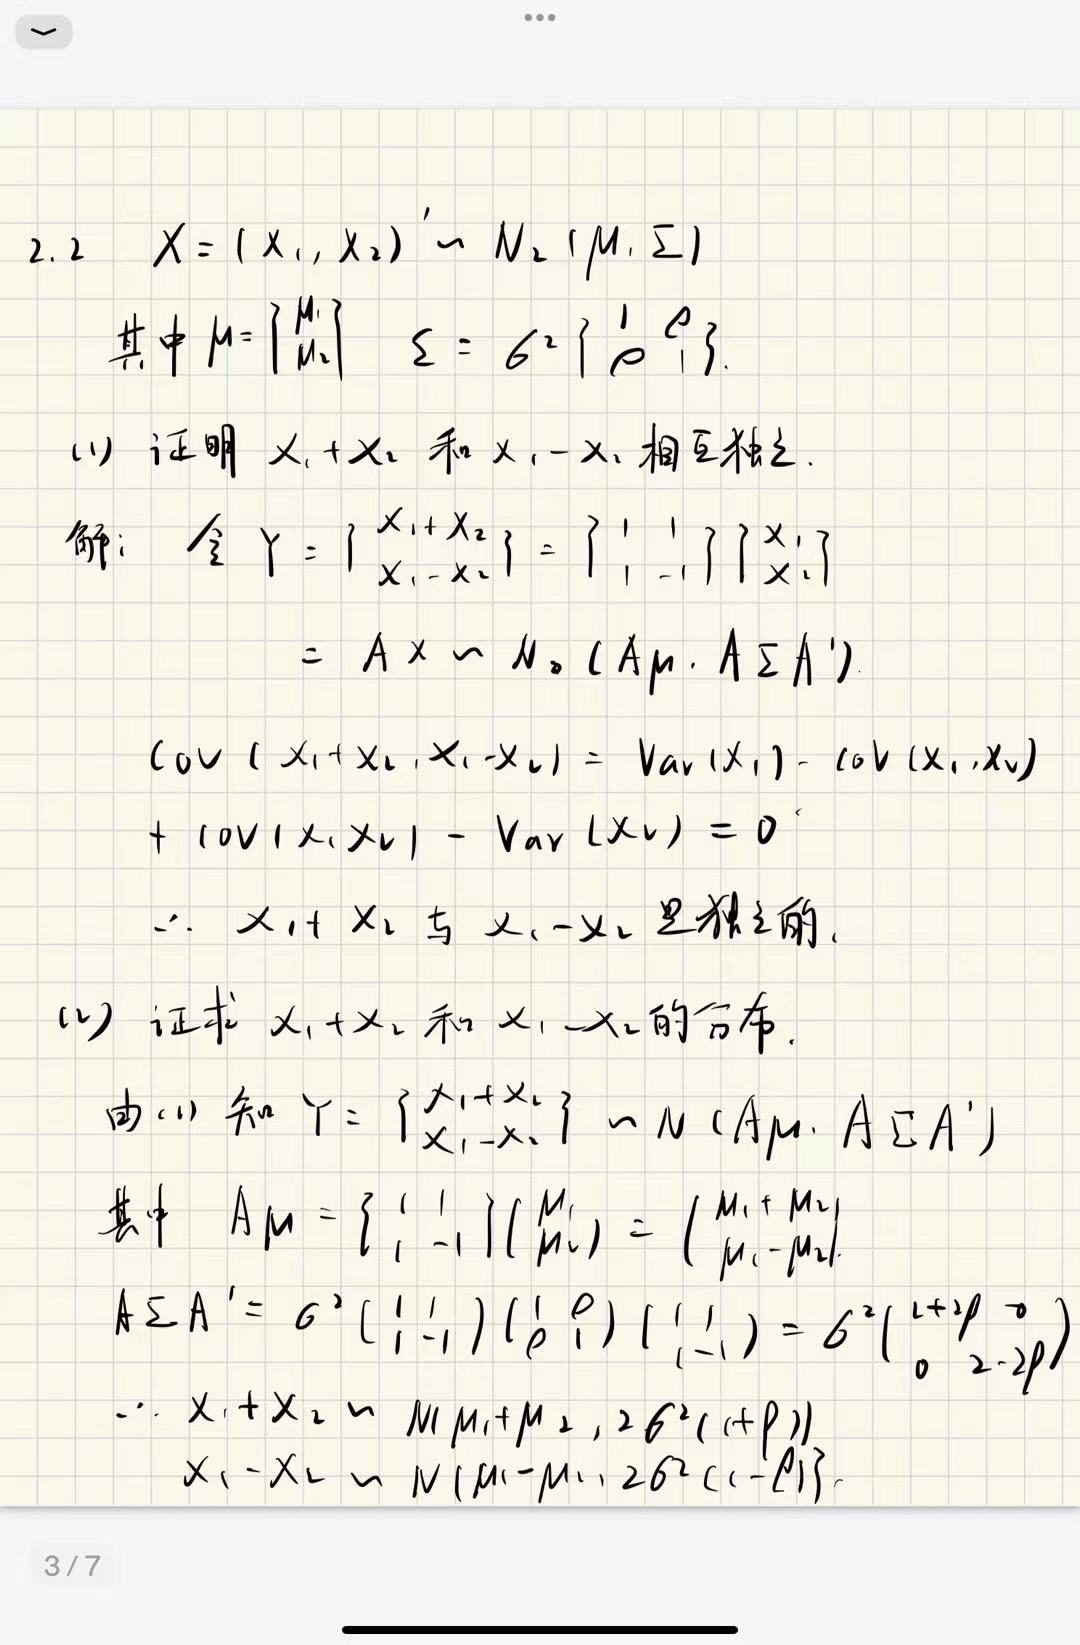 2.2 X=(X₁,X₂)′~N₂(μ,Σ)
其中μ=[μ₁ μ₂] Σ=σ²[1 ρ ρ 1].
(1) 证明X₁+X₂和X₁-X₂相互独立.
解: 令Y=[X₁+X₂ X₁-X₂]=[1 1 1 -1][X₁ X₂]
=AX~N₂(Aμ,AΣA′).
Cov(X₁+X₂,X₁-X₂)=Var(X₁)-Cov(X₁,X₂)
+Cov(X₁X₂)-Var(X₂)=0
∴ X₁+X₂与X₁-X₂是独立的.
(2) 证求X₁+X₂和X₁-X₂的分布.
由(1)知Y=[X₁+X₂ X₁-X₂]~N(Aμ,AΣA′)
其中 Aμ=[1 1 1 -1](μ₁ μ₂)=(μ₁+μ₂ μ₁-μ₂)
AΣA′=σ²(1 1 1 -1)(1 ρ ρ 1)(1 1 1 -1)=σ²(2+2ρ 0 0 2-2ρ)
∴ X₁+X₂~N(μ₁+μ₂,2σ²(1+ρ))
X₁-X₂~N(μ₁-μ₂,2σ²(1-ρ)).
3 / 7